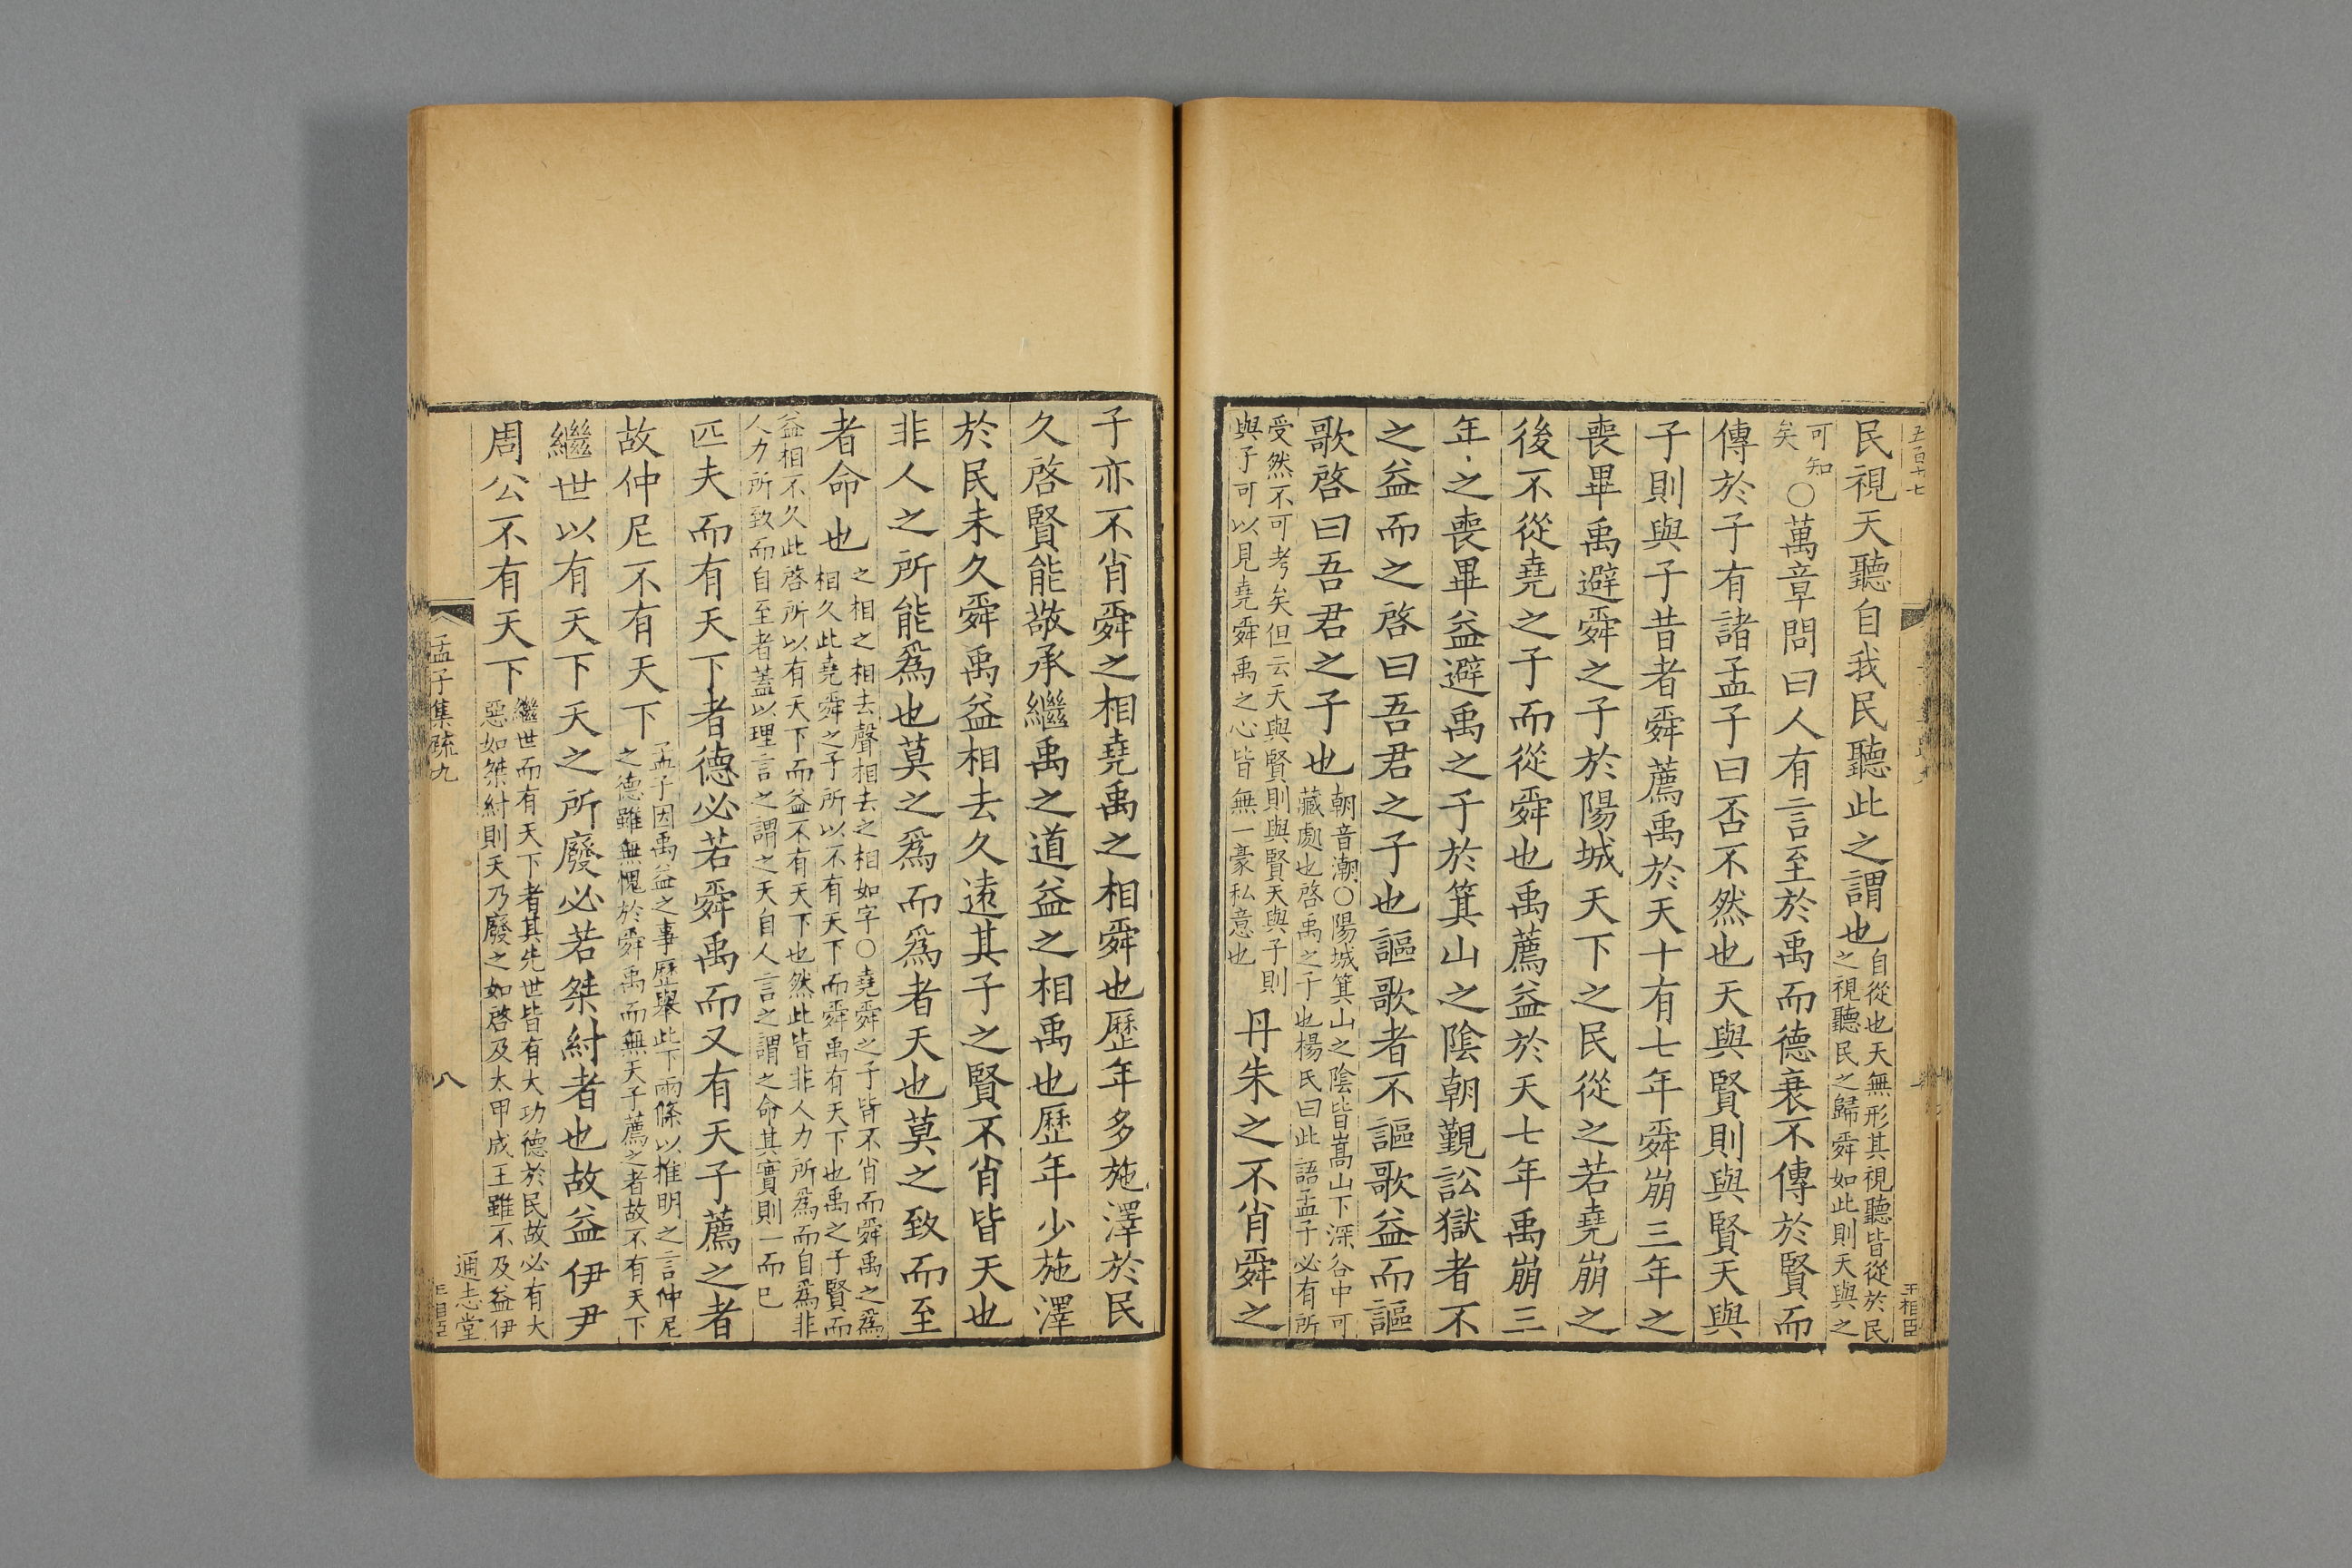 五百十七
王相臣
民視天聽自我民聽此之謂也
自從也天無形其視聽皆從於民
之視聽民之歸舜如此則天與之
可知
矣
○萬章問曰人有言至於禹而德衰不傳於賢而
傳於子有諸孟子曰否不然也天與賢則與賢天與
子則與子昔者舜薦禹於天十有七年舜崩三年之
喪畢禹避舜之子於陽城天下之民從之若堯崩之
後不從堯之子而從舜也禹薦益於天七年禹崩三
年之喪畢益避禹之子於箕山之陰朝覲訟獄者不
之益而之啓曰吾君之子也謳歌者不謳歌益而謳
歌啓曰吾君之子也
朝音潮○陽城箕山之陰皆嵩山下深谷中可
藏處也啓禹之子也楊氏曰此語孟子必有所
受然不可考矣但云天與賢則與賢天與子則
與子可以見堯舜禹之心皆無一豪私意也
丹朱之不肖舜之
子亦不肖舜之相堯禹之相舜也歷年多施澤於民
久啓賢能敬承繼禹之道益之相禹也歷年少施澤
於民未久舜禹益相去久遠其子之賢不肖皆天也
非人之所能爲也莫之爲而爲者天也莫之致而至
者命也
之相之相去聲相去之相如字○堯舜之子皆不肖而舜禹之爲
相久此堯舜之子所以不有天下而舜禹有天下也禹之子賢而
益相不久此啓所以有天下而益不有天下也然此皆非人力所爲而自爲非
人力所致而自至者蓋以理言之謂之天自人言之謂之命其實則一而已
匹夫而有天下者德必若舜禹而又有天子薦之者
故仲尼不有天下
孟子因禹益之事歷舉此下兩條以推明之言仲尼
之德雖無愧於舜禹而無天子薦之者故不有天下
繼世以有天下天之所廢必若桀紂者也故益伊尹
周公不有天下
繼世而有天下者其先世皆有大功德於民故必有大
惡如桀紂則天乃廢之如啓及太甲成王雖不及益伊
孟子集疏九
八
通志堂
王相臣